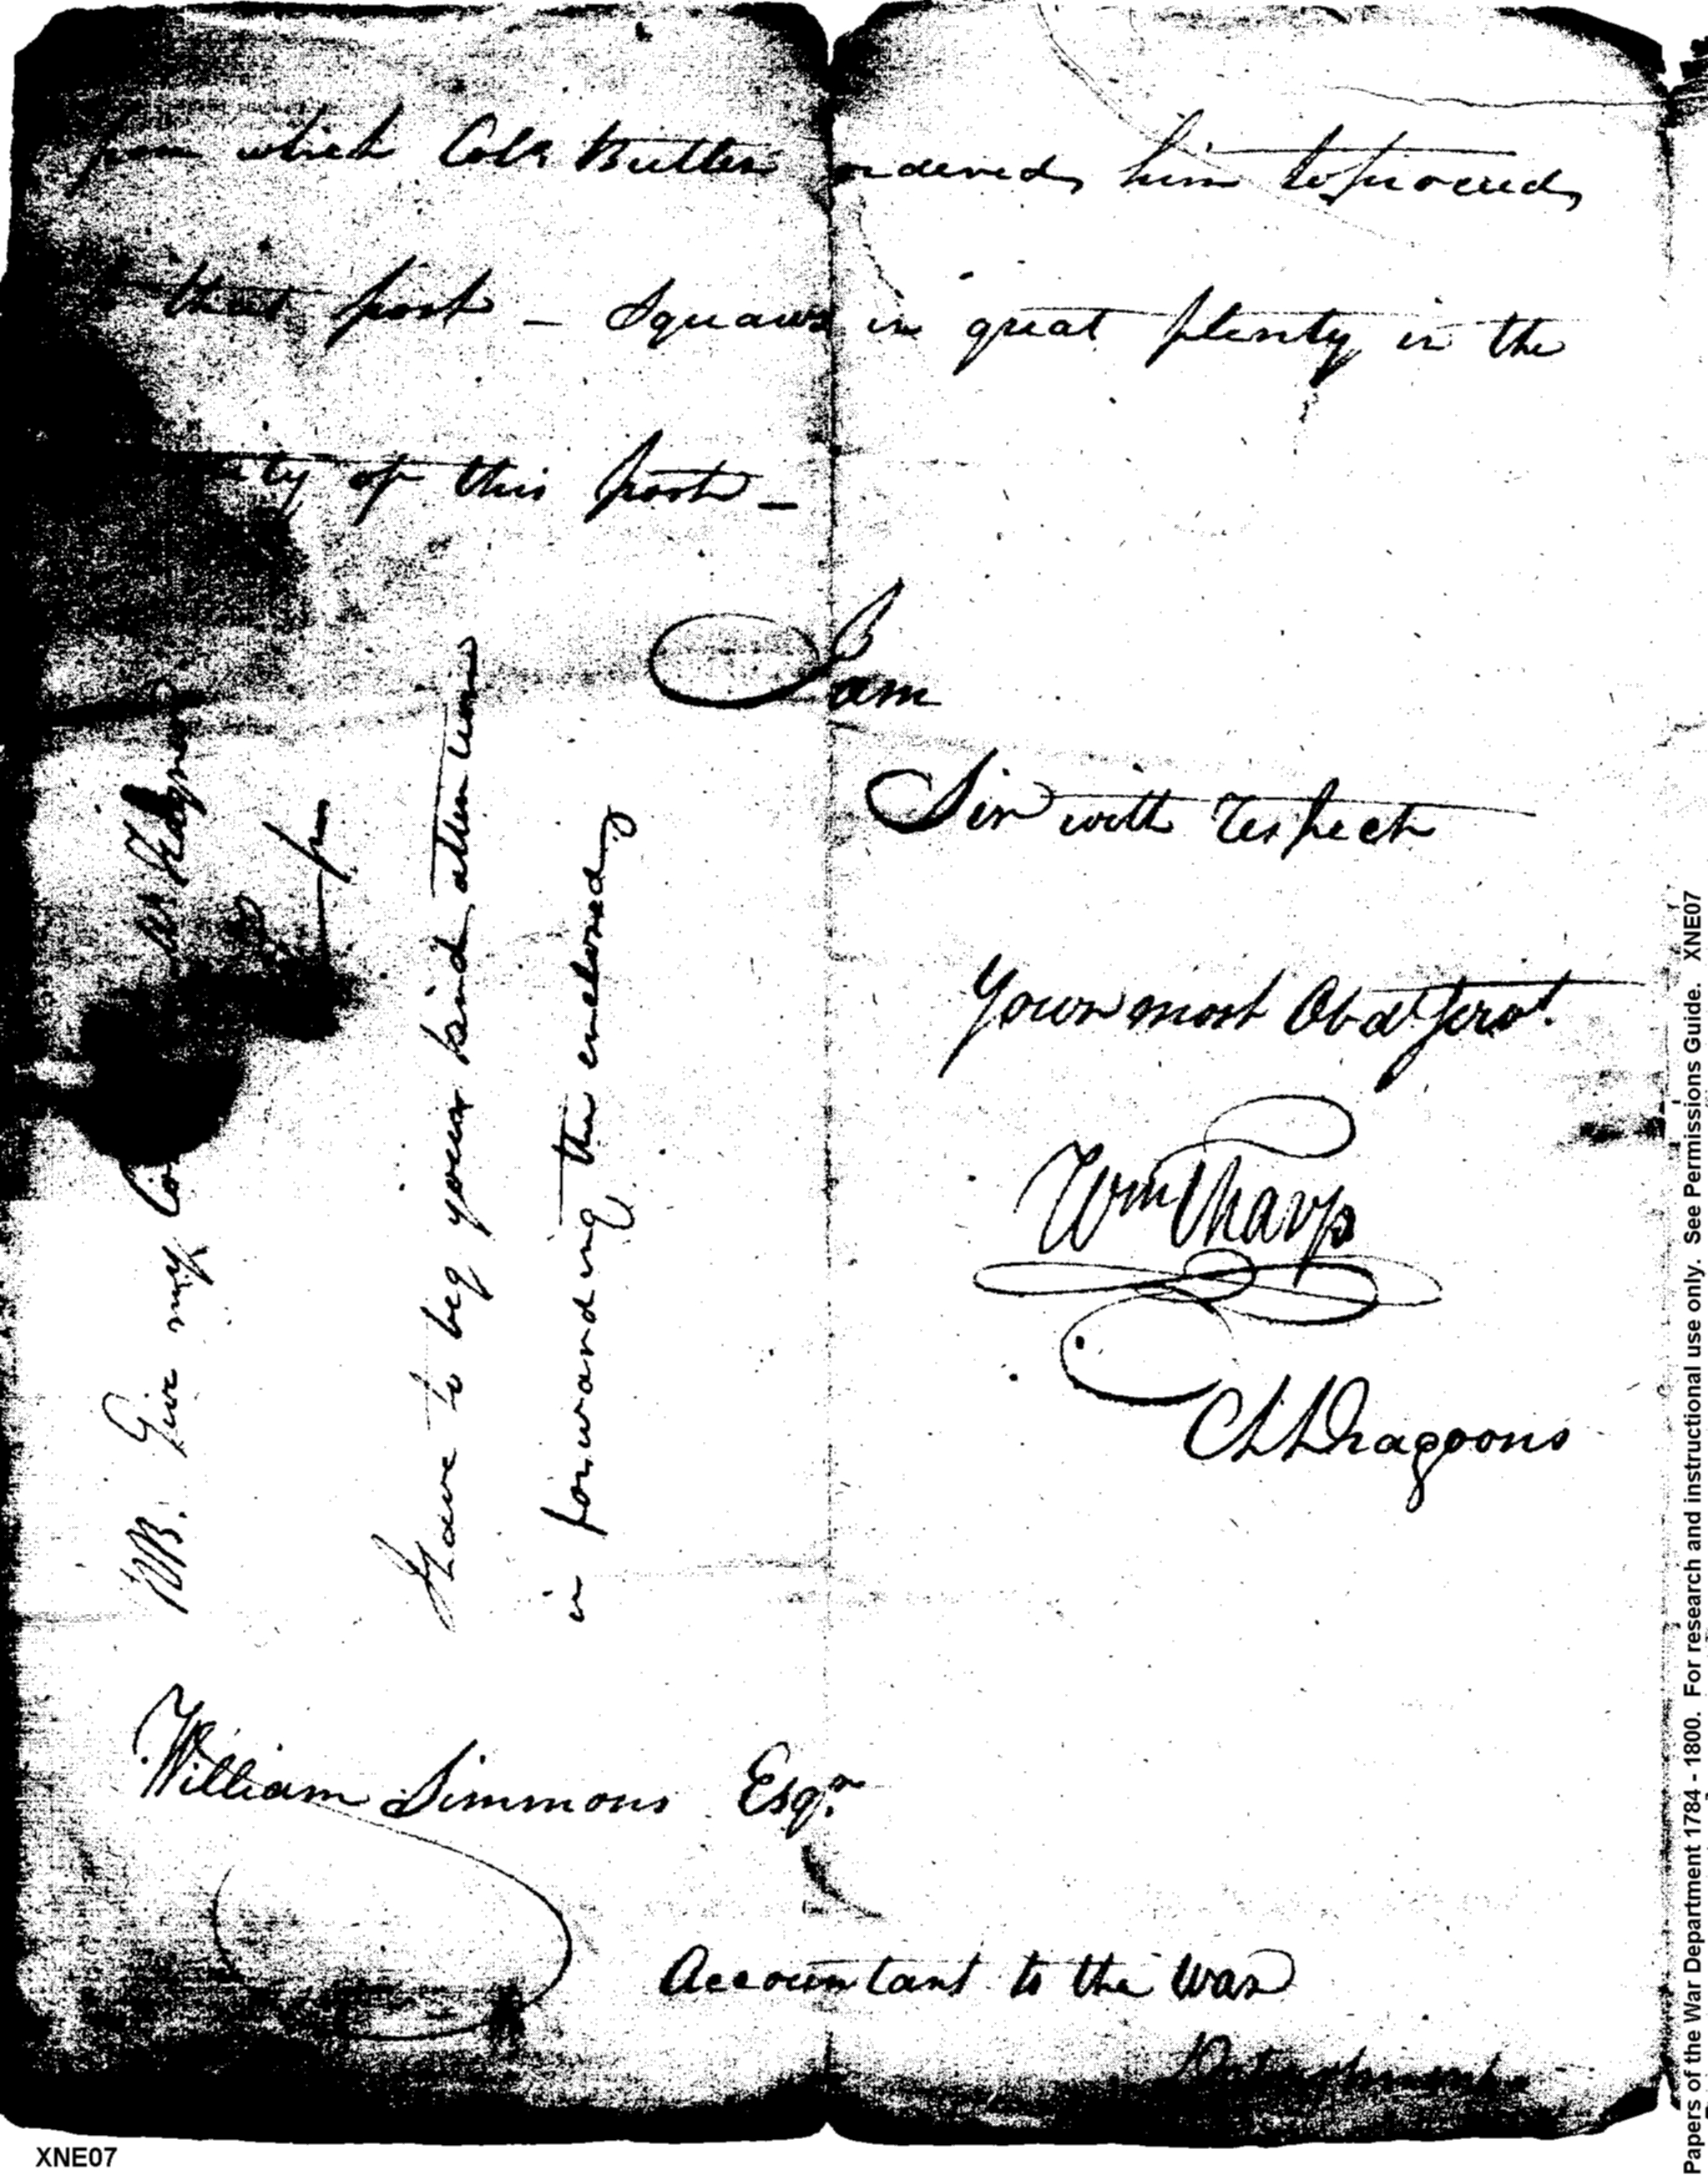 from which Coln Butler ordered him to proceed
that post - Squaws in great plenty in the
ity of this post -
I am
Sir with respect
Your most Obdt Servt
Wm Tharp
C L Dragoons
NB. Give my Co
I have to beg your kind attention
in forwarding the enclosed
William Simmons Esqr.
Accountant to the War
Department
XNE07
Papers of the War Department 1784 - 1800. For research and instructional use only. See Permissions Guide. XNE07